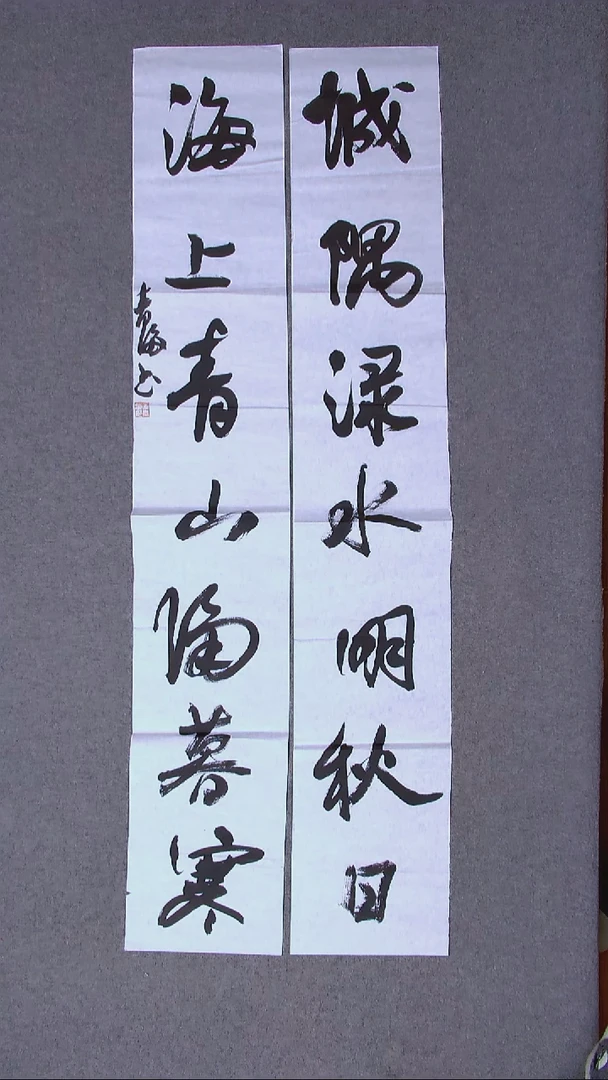 城隅渌水明秋日
海上青山隔暮寒
青海书